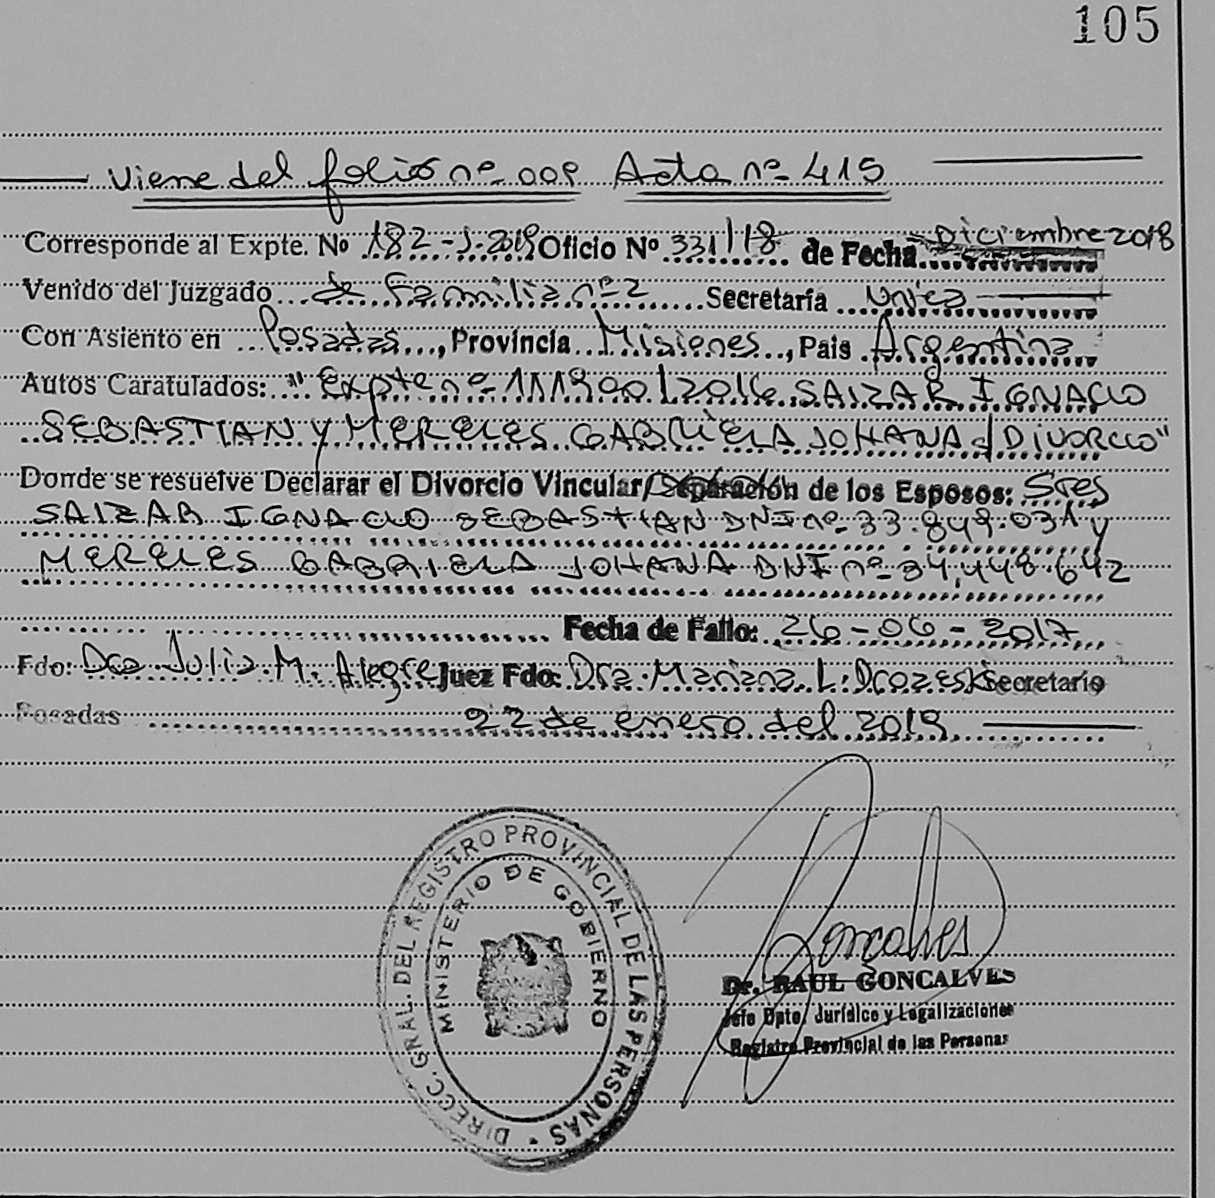 105
Viene del folio nº 009 Acta nº 415
Corresponde al Expte. Nº 182-J-2019 Oficio Nº 331/18 de Fecha Diciembre 2018
Venido del Juzgado de Familia nº 2 Secretaría Unica
Con Asiento en Posadas, Provincia Misiones, Pais Argentina
Autos Caratulados: "Expte nº 111900/2016 SAIZAR IGNACIO
SEBASTIAN y MERELES GABRIELA JOHANA s/DIVORCIO"
Donde se resuelve Declarar el Divorcio Vincular/Separación de los Esposos: Sres
SAIZAR IGNACIO SEBASTIAN DNI nº 33.849.031 y
MERELES GABRIELA JOHANA DNI nº 34.448.642
Fecha de Fallo: 26-06-2017
Fdo: Dra. Julia M. Alegre Juez Fdo: Dra. Mariana L. Secretario
Posadas 22 de enero del 2019
DIRECC. GRAL. DEL REGISTRO PROVINCIAL DE LAS PERSONAS
MINISTERIO DE GOBIERNO
Goncalves
Dr. RAUL GONCALVES
Jefe Dpto. Jurídico y Legalizaciones
Registro Provincial de las Personas